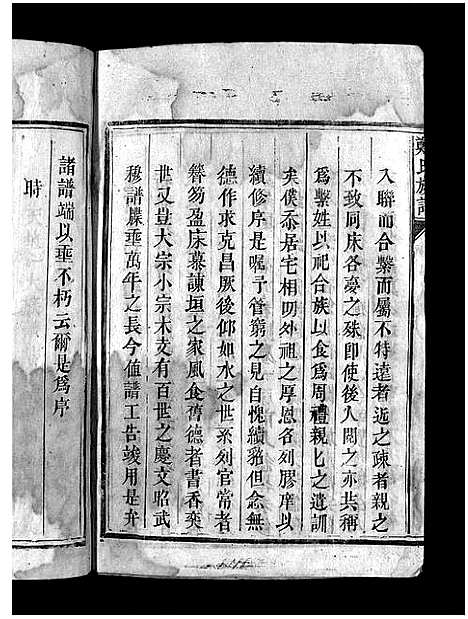 鄭氏族譜
入聯而合繫而屬不特遠者近之疎者親之
不致同床各夢之殊即使後人閱之亦共稱
為繫姓以祀合族以食為周禮親匕之遺訓
矣僕忝居宅相叨外祖之厚恩名列膠庠以
續修序是囑予管窮之見自愧續貂但念無
德作求克昌厥後仰如水之世系列官常者
簪笏盈床慕諫垣之家風食舊德者書香奕
世又豈大宗小宗木支有百世之慶文昭武
穆譜牒垂萬年之長今値譜工告竣用是弁
諸譜端以垂不朽云爾是為序
時